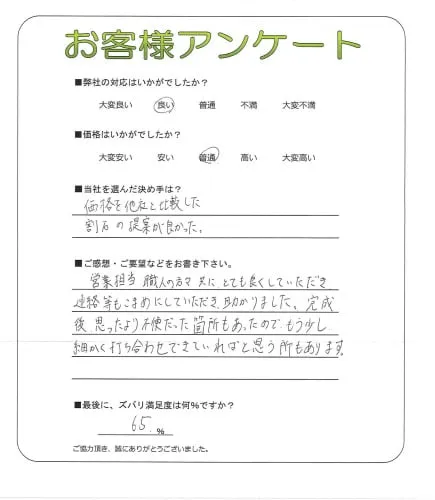 お客様アンケート
■弊社の対応はいかがでしたか?
大変良い 良い 普通 不満 大変不満
■価格はいかがでしたか?
大変安い 安い 普通 高い 大変高い
■当社を選んだ決め手は?
価格を他店と比較した
割石の提案が良かった。
■ご感想・ご要望などをお書き下さい。
営業担当 職人の方々 共に とても良くしていただき
連絡等もこまめにしていただき、助かりました。完成
後、思ったより不便だった箇所もあったので、もう少し
細かく打ち合わせできていればと思う所もあります。
■最後に、ズバリ満足度は何%ですか?
65.%
ご協力頂き、誠にありがとうございました。